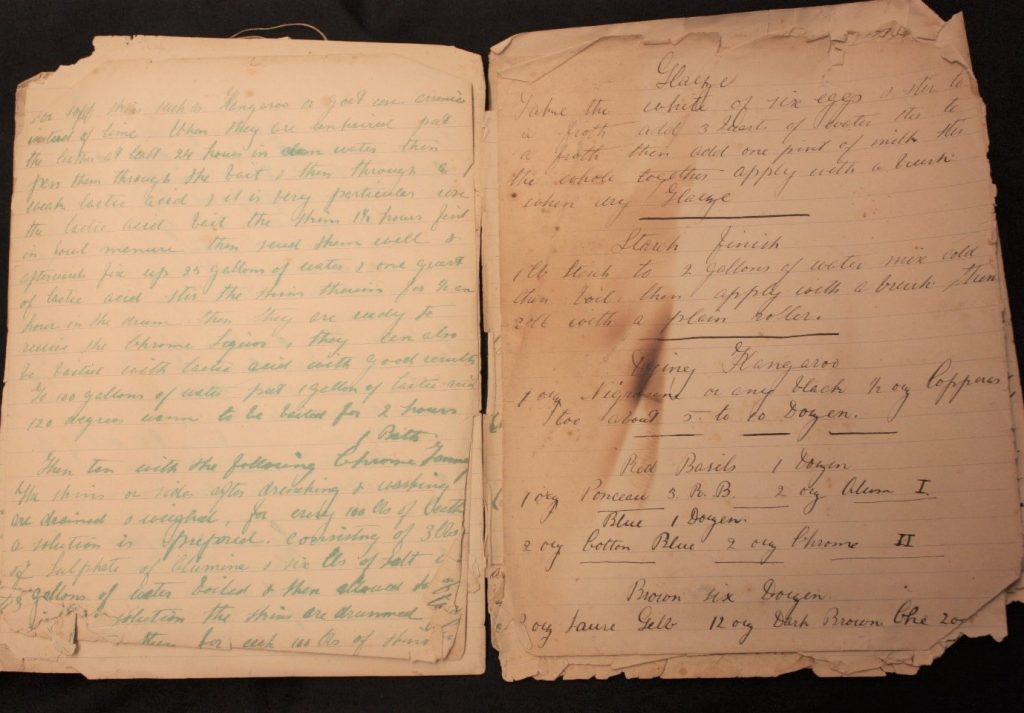 For soft skins such as Kangaroo or goat use arsenic
instead of lime When they are unhaired put
the latter at least 24 hours in clean water then
pass them through the bait & then through a
weak lactic acid & it is very particular use
the lactic acid bait the skins 1½ hours first
in fowl manure then scud them well &
afterwards fix up 25 gallons of water & one quart
of lactic acid stir the skins therein for ½ an
hour in the drum then they are ready to
receive the Chrome Liquor, they can also
be baited with lactic acid with good results
To 100 gallons of water put 1 gallon of lactic acid
120 degrees warm to be baited for 2 hours
1 Bath
Then tan with the following Chrome
The skins or sides after drenching & washing
are drained & weighed, for every 100 lbs of
a solution is prepared. consisting of 3 lbs
of Sulphate of Alumina & six lbs of salt
gallons of water boiled & then allowed to
solution the skins are drummed
them for each 100 lbs of skins
Glaze
Take the white of six eggs & stir to
a froth add 3 quarts of water stir to
a froth then add one pint of milk stir
the whole together apply with a brush
when dry Glaze
Starch finish
1 lb Starch to 2 gallons of water mix cold
then boil. then apply with a brush then
roll with a plain roller.
Dying Kangaroo
1 ozy Nigrosine or any black ½ ozy Copperas
too about 5 to 10 Dozen.
Red Basils 1 Dozen
1 ozy Ponceau 3 R.B. 2 ozy Alum I
Blue 1 Dozen.
2 ozy Cotton Blue 2 ozy Chrome II
Brown six Dozen
2 ozy Saure Gelb 12 ozy Dark Brown Chr 2 oz